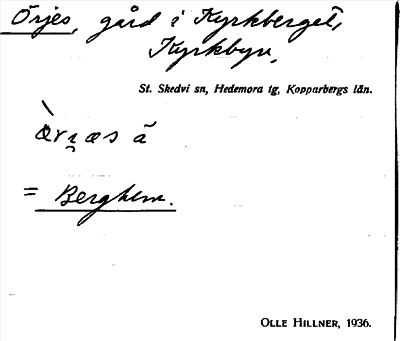 Örjes, gård i Kyrkberget,
Kyrkbyn,
St. Skedvi sn, Hedemora tg, Kopparbergs län.
= Berghem.
OLLE HILLNER, 1936.